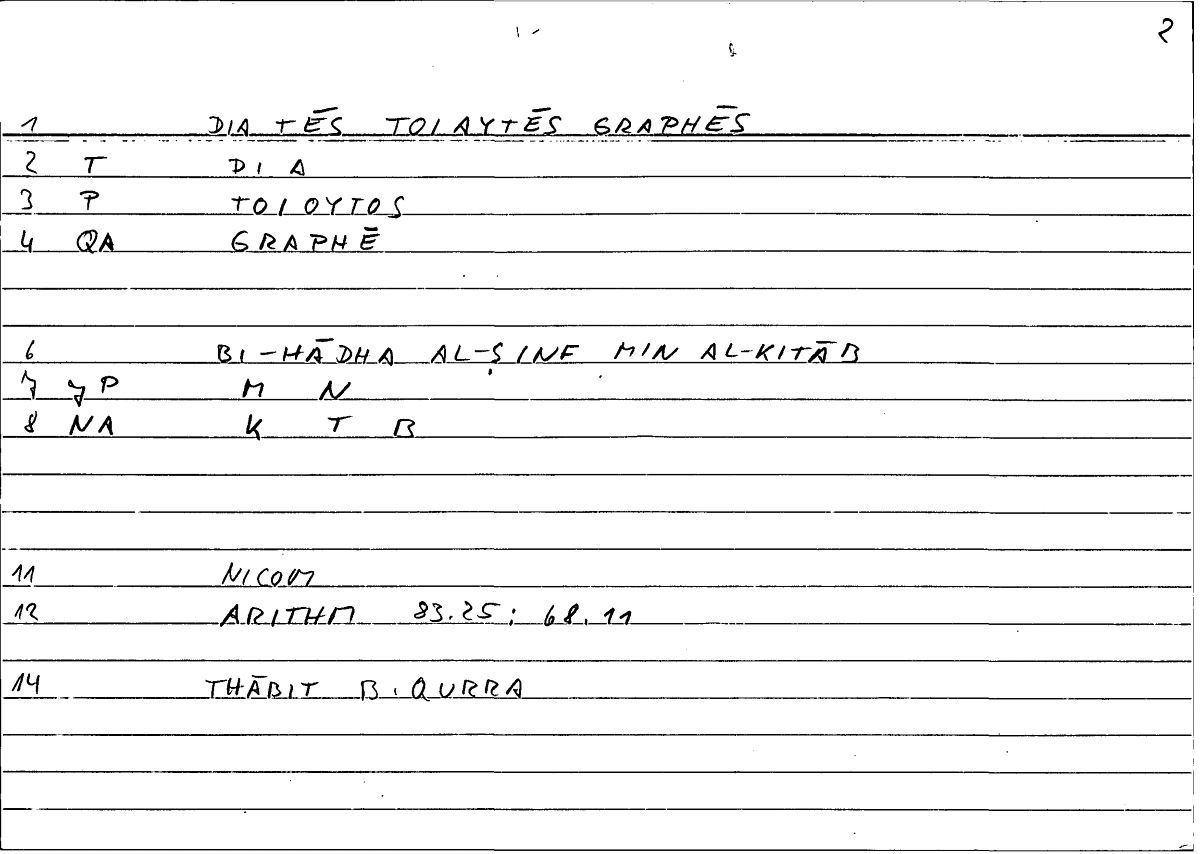 2
1 DIA TĒS TOIAYTĒS GRAPHĒS
2 T DIA
3 P TOIOYTOS
4 QA GRAPHĒ
6 BI-HĀDHA AL-ṢINF MIN AL-KITĀB
7 yP M N
8 NA K T B
11 NICOM
12 ARITHM 83.25; 68.11
14 THĀBIT B. QURRA